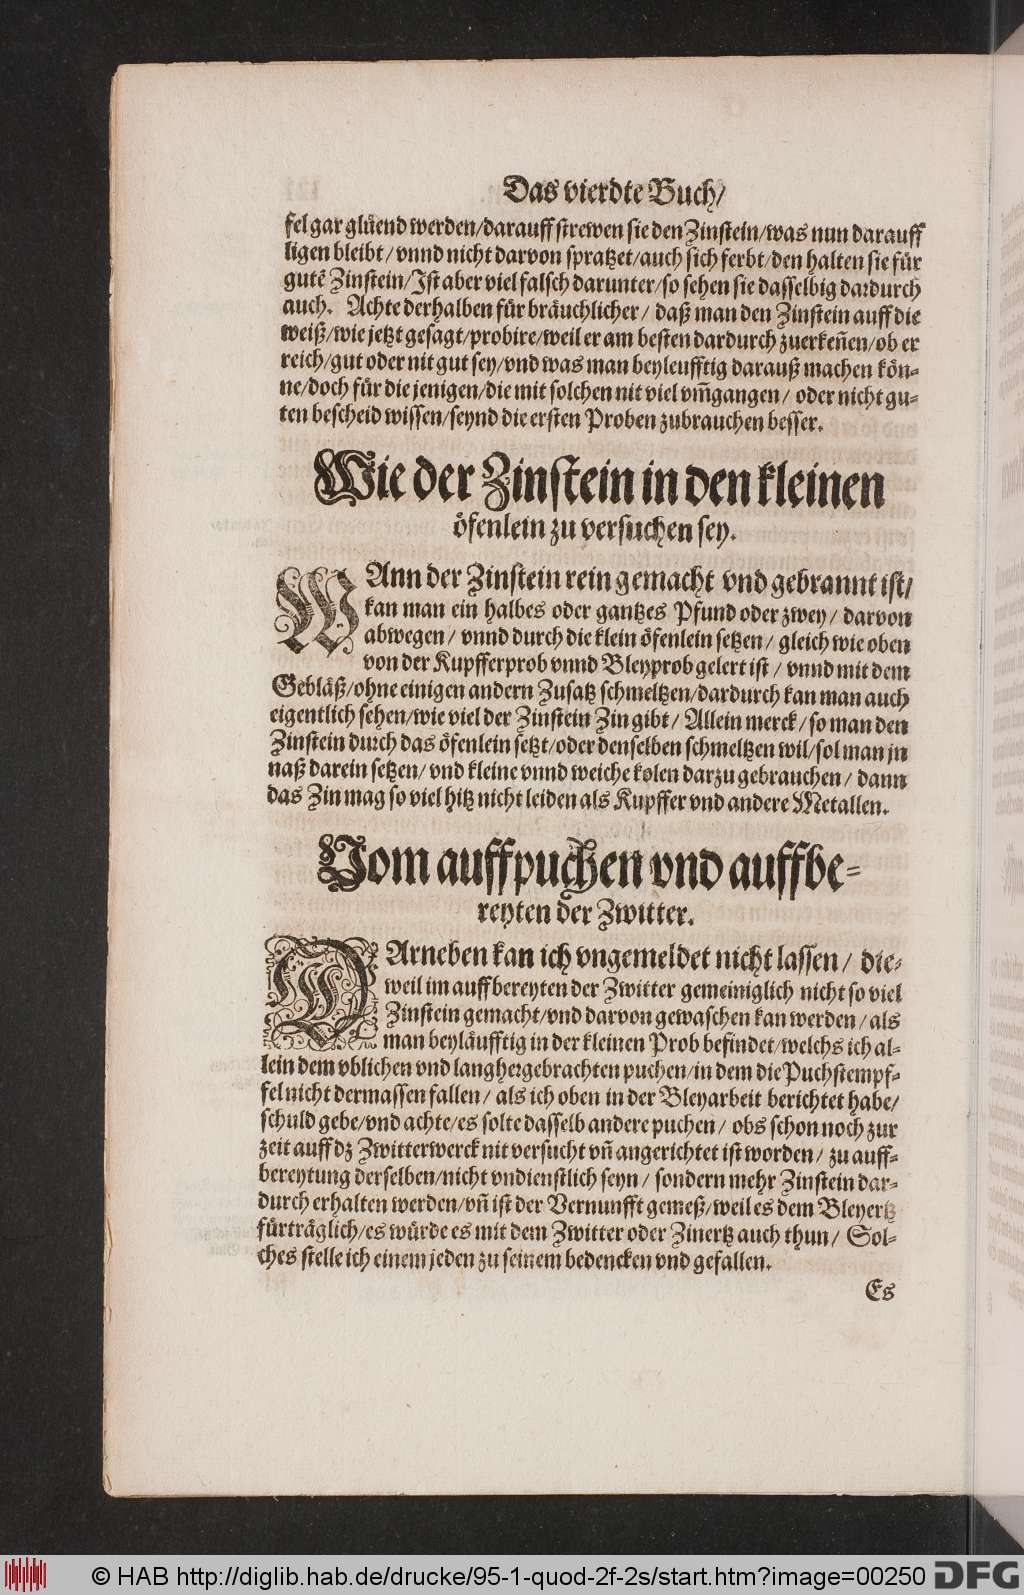 Das vierdte Buch/
fel gar glüend werden/darauff strewen sie den Zinstein/was nun darauff
ligen bleibt/vnnd nicht darvon spratzet/auch sich ferbt/den halten sie für
gutẽ Zinstein/Ist aber viel falsch darunter/so sehen sie dasselbig dardurch
auch. Achte derhalben für bräuchlicher/daß man den Zinstein auff die
weiß/wie jetzt gesagt/probire/weil er am besten dardurch zuerkeñen/ob er
reich/gut oder nit gut sey/vnd was man beyleufftig darauß machen kön-
ne/doch für die jenigen/die mit solchen nit viel vm̃gangen/oder nicht gu-
ten bescheid wissen/seynd die ersten Proben zubrauchen besser.
Wie der Zinstein in den kleinen
öfenlein zu versuchen sey.
WAnn der Zinstein rein gemacht vnd gebrannt ist/
kan man ein halbes oder gantzes Pfund oder zwey/darvon
abwegen/vnnd durch die klein öfenlein setzen/gleich wie oben
von der Kupfferprob vnnd Bleyprob gelert ist/vnnd mit dem
Gebläß/ohne einigen andern Zusatz schmeltzen/dardurch kan man auch
eigentlich sehen/wie viel der Zinstein Zin gibt/Allein merck/so man den
Zinstein durch das öfenlein setzt/oder denselben schmeltzen wil/sol man jn
naß darein setzen/vnd kleine vnnd weiche kolen darzu gebrauchen/dann
das Zin mag so viel hitz nicht leiden als Kupffer vnd andere Metallen.
Vom auffpuchen vnd auffbe-
reyten der Zwitter.
DArneben kan ich vngemeldet nicht lassen/die-
weil im auffbereyten der Zwitter gemeiniglich nicht so viel
Zinstein gemacht/vnd darvon gewaschen kan werden/als
man beyläufftig in der kleinen Prob befindet/welchs ich al-
lein dem vblichen vnd langhergebrachten puchen/in dem die Puchstempf-
fel nicht dermassen fallen/als ich oben in der Bleyarbeit berichtet habe/
schuld gebe/vnd achte/es solte dasselb andere puchen/obs schon noch zur
zeit auff dz Zwitterwerck nit versucht vñ angerichtet ist worden/zu auff-
bereytung derselben/nicht vndienstlich seyn/sondern mehr Zinstein dar-
durch erhalten werden/vñ ist der Vernunfft gemeß/weil es dem Bleyertz
fürträglich/es würde es mit dem Zwitter oder Zinertz auch thun/Sol-
ches stelle ich einem jeden zu seinem bedencken vnd gefallen.
Es
© HAB http://diglib.hab.de/drucke/95-1-quod-2f-2s/start.htm?image=00250
DFG